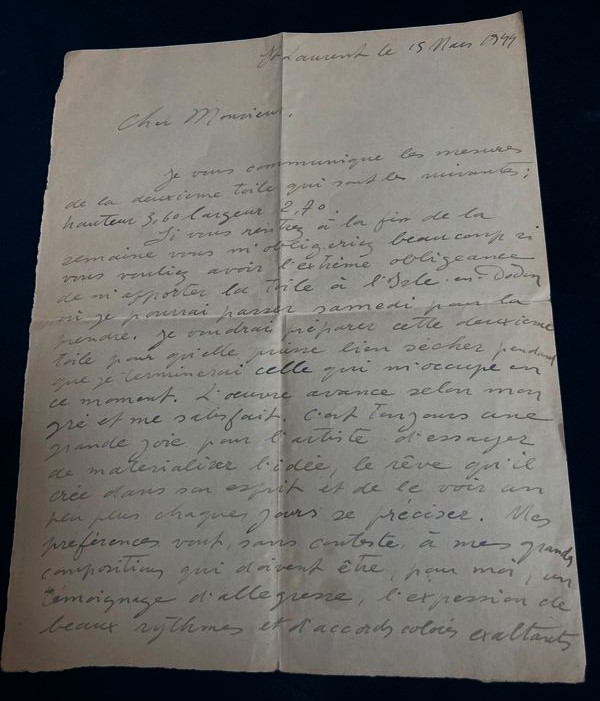 St Laurent le 15 Mars 1944
Cher Monsieur,
Je vous communique les mesures
de la deuxième toile qui sont les suivantes :
hauteur 3,60 largeur 2,70.
Si vous rentrez à la fin de la
semaine vous m'obligeriez beaucoup si
vous vouliez avoir l'extrême obligeance
de m'apporter la toile à l'Isle-en-Dodon
où je pourrai passer samedi pour la
prendre. Je voudrais préparer cette deuxième
toile pour qu'elle puisse bien sécher pendant
que je terminerai celle qui m'occupe en
ce moment. L'oeuvre avance selon mon
gré et me satisfait. C'est toujours une
grande joie pour l'artiste d'essayer
de matérialiser l'idée, le rêve qu'il
crée dans son esprit et de le voir un
peu plus chaques jours se préciser. Mes
préférences vont, sans conteste, à mes grandes
compositions qui doivent être, pour moi, un
témoignage d'allegresse, l'expession de
beaux rythmes et d'accords colorés exaltants